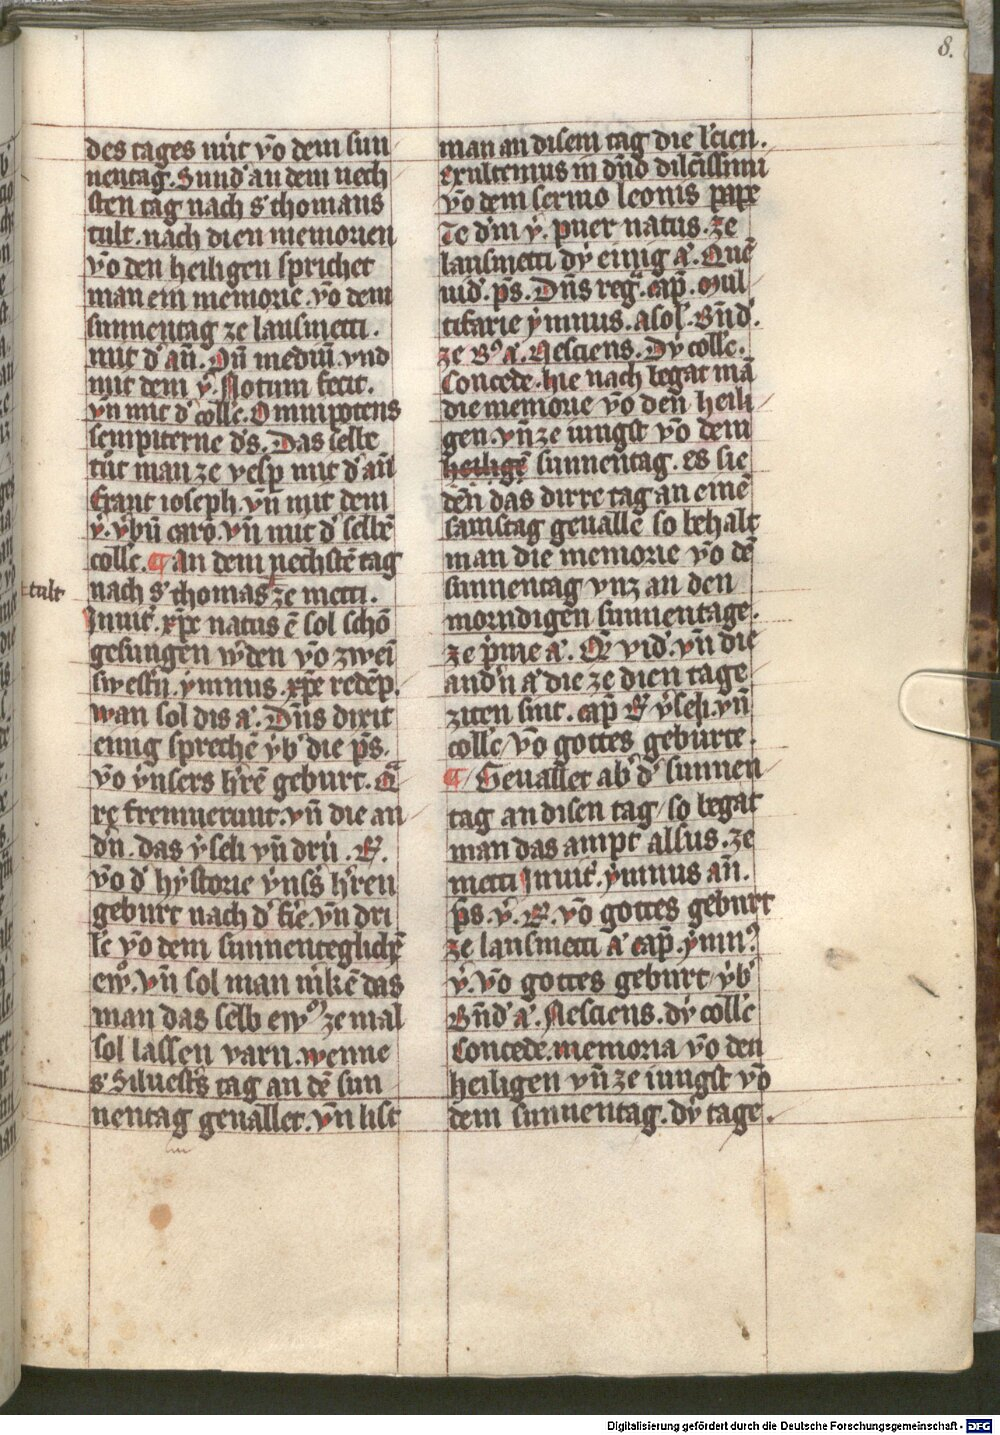 8.
des tages nút vō dem sun
nentag. Sund' an dem nech
sten tag nach s' thomans
tult. nach dien memorien
vō den heiligen sprichet
man ein memorie. vō dem
sunnentag ze lausmetti.
mit d' an̄. Dū mediū. vnd
mit dem ẏ. Notum fecit.
vn̄ mit d' colle. Omnipotens
sempiterne ds. Das selbe
tůt man ze vesp mit d' an̄
Erant ioseph. vn̄ mit dem
ẏ. vbū caro. vn̄ mit d' selbē
colle. ¶ An dem nechstē tag
tult
nach s' thomas ze metti.
Inuit'. xp̄e natus ē sol schō
gesungen w'den vō zwei
swest'n. ymnus. xp̄e redēp.
wan sol dis a'. Dn̄s dixit
einig sprechē vb' die ps.
vō vnsers h'rē geburt. Q
re fremuerunt. vn̄ die an
d'n. das v'seli vn̄ drú. R.
vō d' hystorie vns's h'ren
geburt nach d' f'ie. vn̄ dri
le vō dem sunnenteglichē
ew. vn̄ sol man m'kē das
man das selb ew ze mal
sol lassen varn. wenne
s' Siluest's tag an dē sun
nentag geuallet. vn̄ list
man an disem tag die l'cien.
exultemus in dn̄o dilc̄issimi
vō dem sermo leonis pape
Te d'm ẏ. puer natus. ze
lausmetti dy einig a'. Quē
uid'. ps. Dn̄s reg'. cap. Mul
tifarie ymnus. a sol'. Bn̄d'.
ze B' a'. Nesciens. Dy colle.
Concede. hie nach begat mā
die memorie vō den heili
gen. vn̄ ze iungst vō dem
heiligē sunnentag. es sie
dēn das dirre tag an einē
samstag geuallē so behalt
man die memorie vō dē
sunnentag vnz an den
morndigen sunnentage.
ze p'me a'. Q' vid'. vn̄ die
and'n a' die ze dien tage
ziten sint. cap R v'seli. vn̄
colle vō gottes geburte.
¶ Geuallet ab' d' sunnen
tag an disen tag so begat
man das ampt alsus. ze
metti Inuit'. ymnus an̄.
ps. ẏ. R. vō gottes geburt
ze lausmetti a' cap. ymn'
ẏ. vō gottes geburt vb'
Bn̄d' a'. Nesciens. dy colle
Concede. memoria vō den
heiligen vn̄ ze iungst vō
dem sunnentag. dy tage.
Digitalisierung gefördert durch die Deutsche Forschungsgemeinschaft - DFG